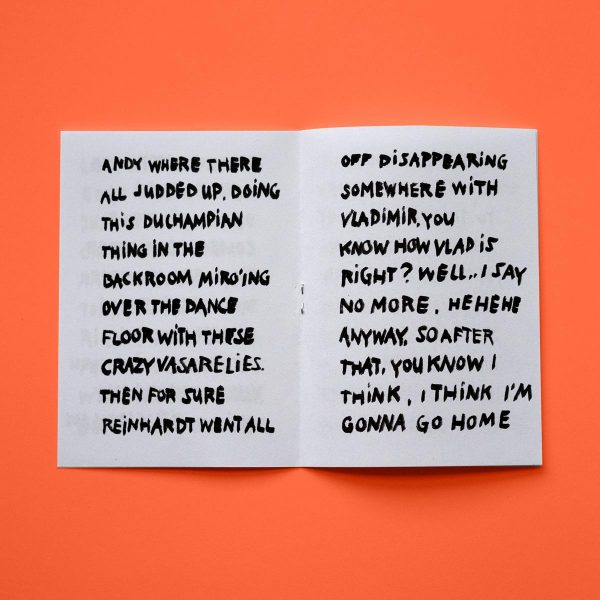 ANDY WHERE THERE
ALL JUDDED UP, DOING
THiS DUCHAMPIAN
THING IN THE
BACKROOM MIRO'ING
OVER THE DANCE
FLOOR WITH THESE
CRAZY VASARELIES.
THEN FOR SURE
REiNHARDT WENT ALL
OFF DiSAPPEARING
SOMEWHERE WiTH
VLADiMIR, YOU
KNOW HOW VLAD iS
RIGHT? WELL.. I SAY
NO MORE, HEHEHE
ANYWAY, SO AFTER
THAT, YOU KNOW I
THiNK, I THiNK I'M
GONNA GO HOME